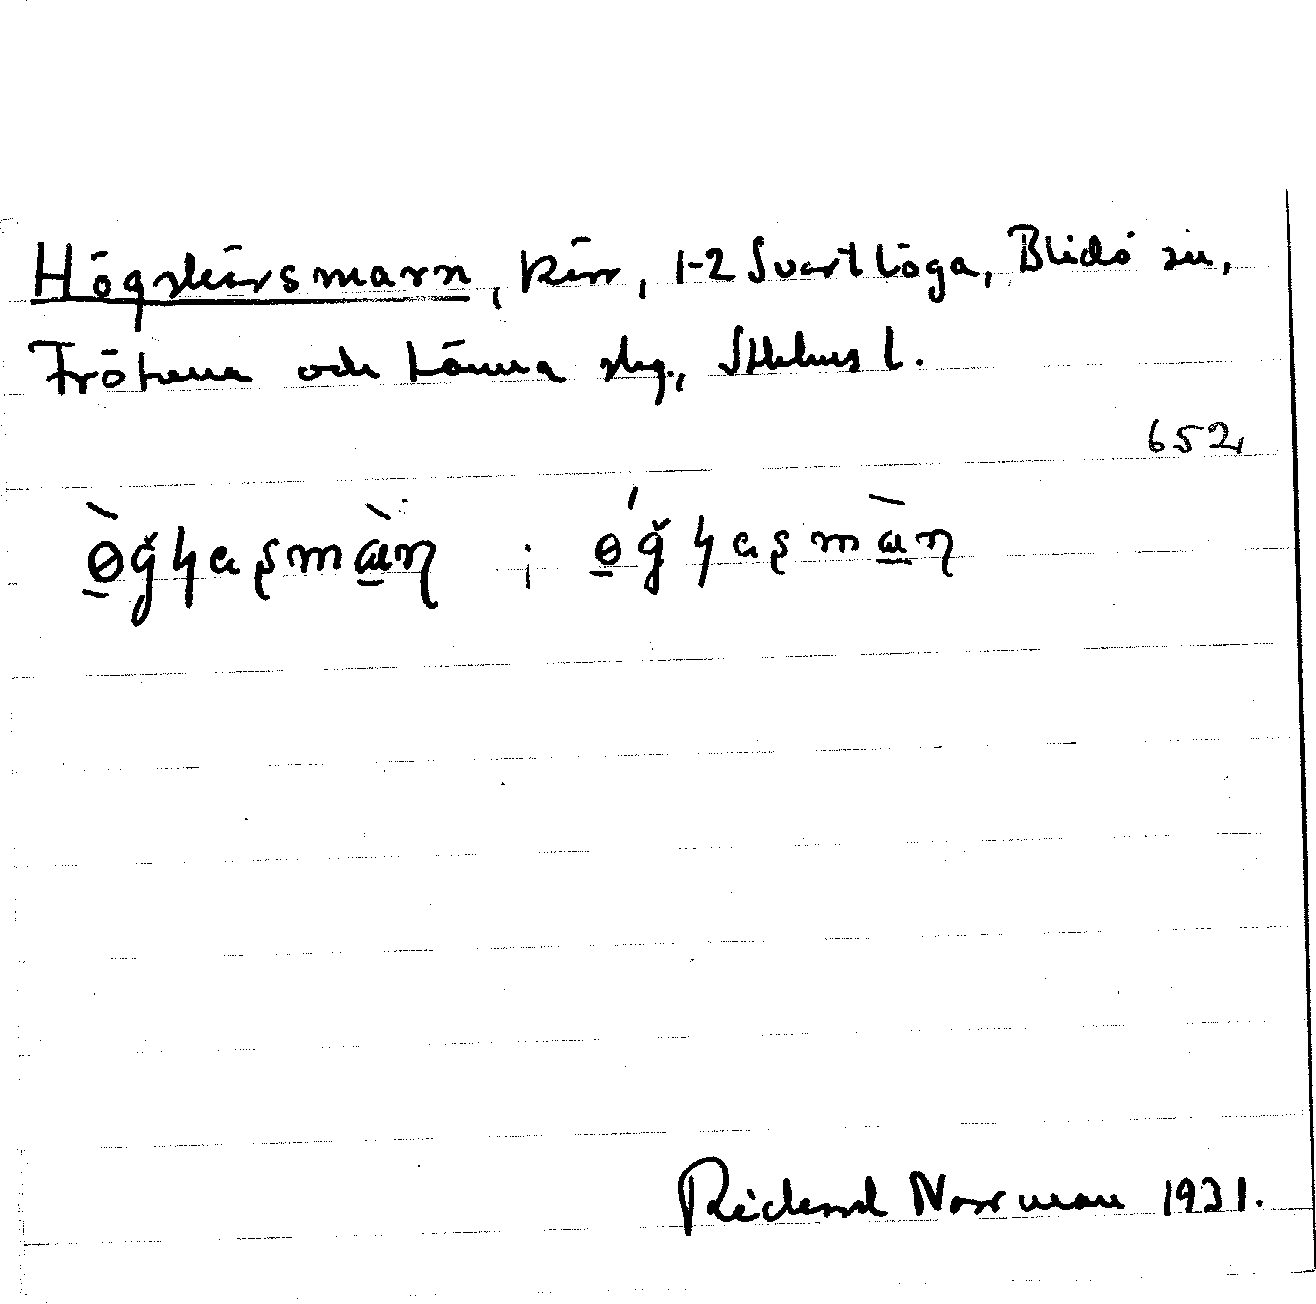 Högskärsmarn, Kärr, 1-2 Svartlöga, Blidö sn,
Frötuna och Länna skg., Sthlms l.
652,
Richard Norrman 1931.